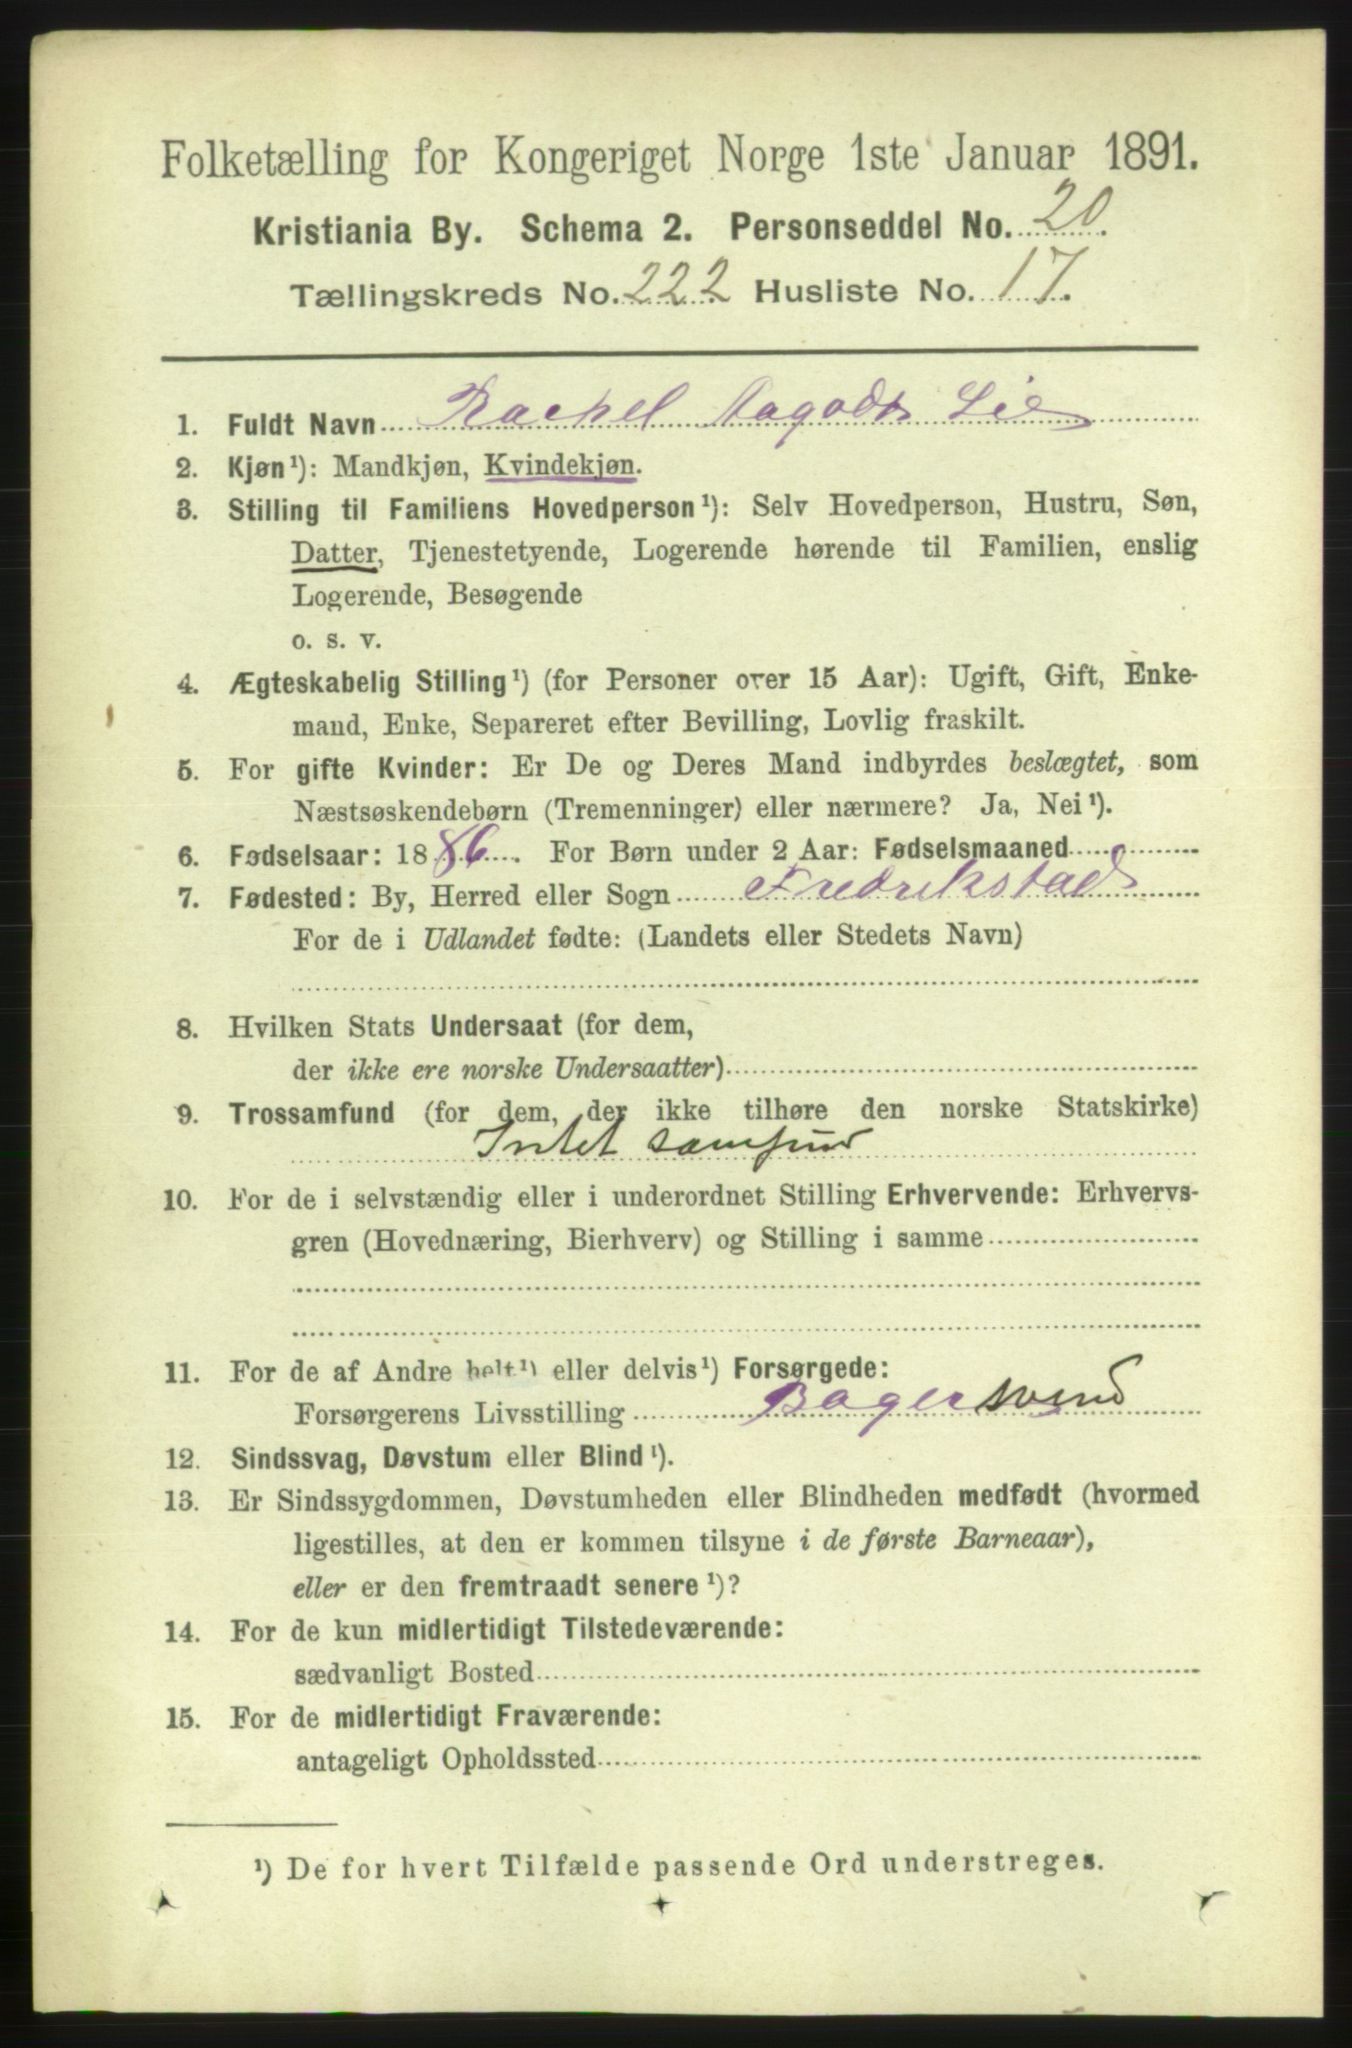 Folketælling for Kongeriget Norge 1ste Januar 1891.
Kristiania By. Schema 2. Personseddel No. 20.
Tællingskreds No. 222 Husliste No. 17.
1. Fuldt Navn Rachel Lie
2. Kjøn¹): Mandkjøn, Kvindekjøn.
3. Stilling til Familiens Hovedperson¹): Selv Hovedperson, Hustru, Søn,
Datter, Tjenestetyende, Logerende hørende til Familien, enslig
Logerende, Besøgende
o. s. v.
4. Ægteskabelig Stilling¹) (for Personer over 15 Aar): Ugift, Gift, Enke-
mand, Enke, Separeret efter Bevilling, Lovlig fraskilt.
5. For gifte Kvinder: Er De og Deres Mand indbyrdes beslægtet, som
Næstsøskendebørn (Tremenninger) eller nærmere? Ja, Nei¹).
6. Fødselsaar: 1886. For Børn under 2 Aar: Fødselsmaaned
7. Fødested: By, Herred eller Sogn Fredrikstad
For de i Udlandet fødte: (Landets eller Stedets Navn)
8. Hvilken Stats Undersaat (for dem,
der ikke ere norske Undersaatter)
9. Trossamfund (for dem, der ikke tilhøre den norske Statskirke)
Intet samfund
10. For de i selvstændig eller i underordnet Stilling Erhvervende: Erhvervs-
gren (Hovednæring, Bierhverv) og Stilling i samme
11. For de af Andre helt¹) eller delvis¹) Forsørgede:
Forsørgerens Livsstilling Bagersvend
12. Sindssvag, Døvstum eller Blind¹).
13. Er Sindssygdommen, Døvstumheden eller Blindheden medfødt (hvormed
ligestilles, at den er kommen tilsyne i de første Barneaar),
eller er den fremtraadt senere¹)?
14. For de kun midlertidigt Tilstedeværende:
sædvanligt Bosted
15. For de midlertidigt Fraværende:
antageligt Opholdssted
¹) De for hvert Tilfælde passende Ord understreges.